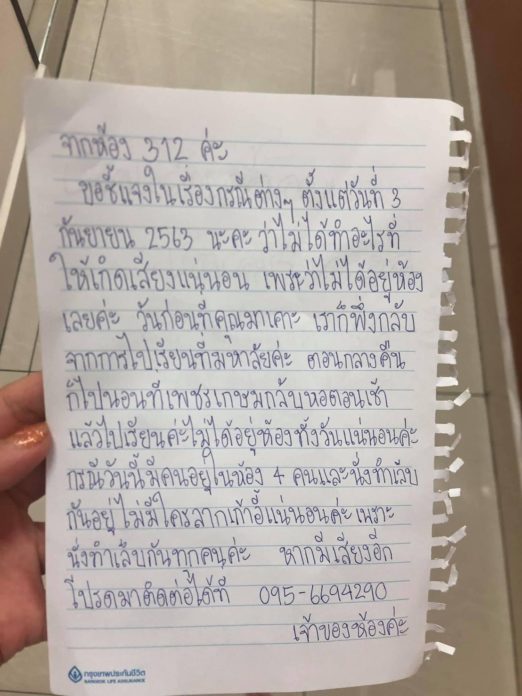 จากห้อง 312 ค่ะ
ขอชี้แจงในเรื่องกรณีต่างๆ ตั้งแต่วันที่ 3
กันยายน 2563 นะคะ ว่าไม่ได้ทำอะไรที่
ให้เกิดเสียงแน่นอน เพราะว่าไม่ได้อยู่ห้อง
เลยค่ะ วันก่อนที่คุณมาเคาะ เราก็พึ่งกลับ
จากการไปเรียนที่มหาลัยค่ะ ตอนกลางคืน
ก็ไปนอนที่เพชรเกษมกลับหอตอนเช้า
แล้วไปเรียนค่ะไม่ได้อยู่ห้องทั้งวันแน่นอนค่ะ
กรณีวันนี้มีคนอยู่ในห้อง 4 คนและนั่งทำเล็บ
กันอยู่ ไม่มีใครลากเก้าอี้แน่นอนค่ะ เพราะ
นั่งทำเล็บกันทุกคนค่ะ หากมีเสียงอีก
โปรดมาติดต่อได้ที่ 095-6694290
เจ้าของห้องค่ะ
กรุงเทพประกันชีวิต
BANGKOK LIFE ASSURANCE